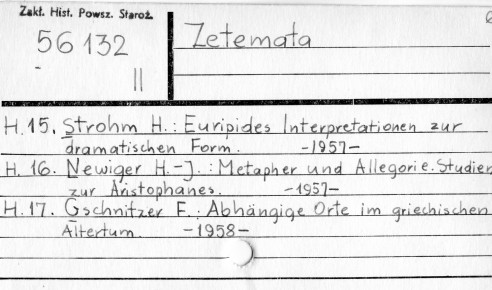 Zakł. Hist. Powsz. Staroż.
56132
II
Zetemata
H.15. Strohm H.: Euripides Interpretationen zur
dramatischen Form. -1957-
H. 16. Newiger H.-J.: Metapher und Allegorie. Studien
zur Aristophanes. -1957-
H.17. Gschnitzer F.: Abhängige Orte im griechischen
Altertum. -1958-